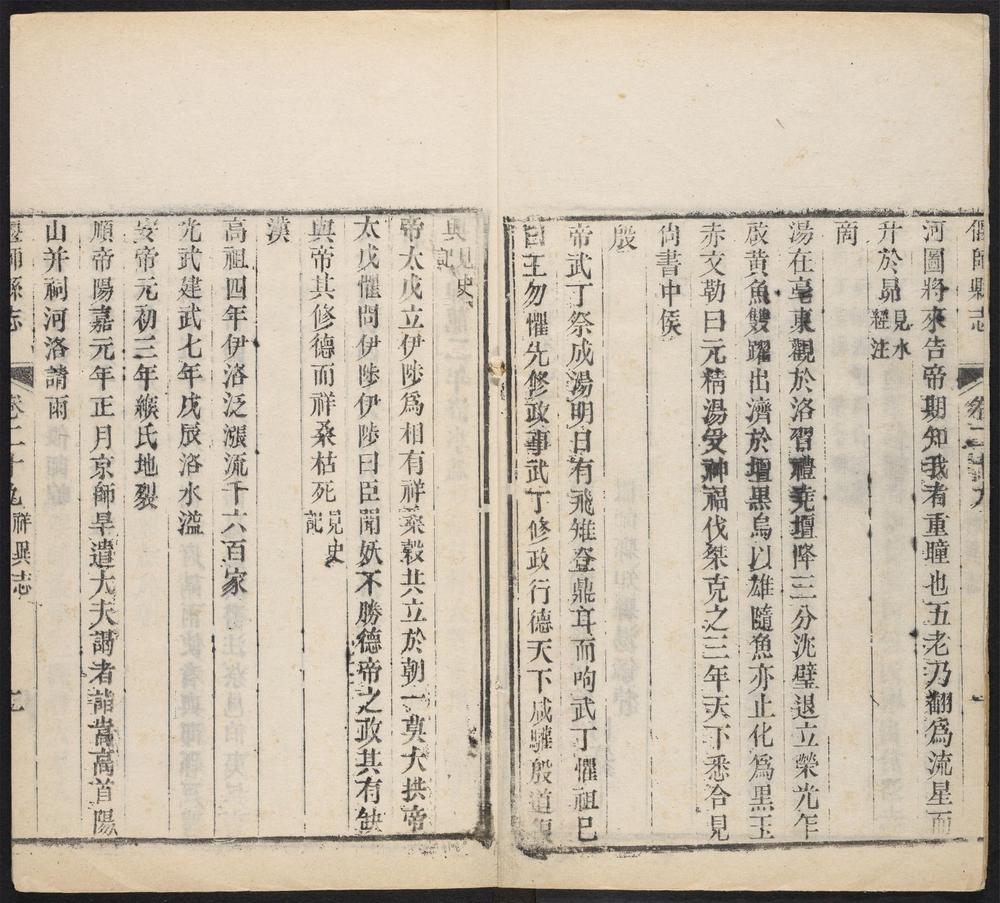 偃師縣志 卷二十九 一
河圖將來告帝期知我者重瞳也五老乃翻爲流星而
升於昴見水經注
商
湯在亳東觀於洛習禮堯壇降三分洮璧退立榮光午
啟黃魚雙躍出濟於壇黑烏以雄隨魚亦止化爲黑玉
赤文勒曰元精湯受神福伐桀克之三年天下悉合見
尚書中侯
殷
帝武丁祭成湯明日有飛雉登鼎耳而呴武丁懼祖巳
曰王勿懼先修政事武丁修政行德天下咸驩殷道復
興見史記
帝太戊立伊陟爲相有祥桑榖共立於朝一莫大拱帝
太戊懼問伊陟伊陟曰臣聞妖不勝德帝之政其有缺
與帝其修德而祥桑枯死見史記
漢
高祖四年伊洛泛漲流千六百家
光武建武七年戊辰洛水溢
安帝元初三年緱氏地裂
順帝陽嘉元年正月京師旱遣大夫謁者詣嵩高首陽
山并祠河洛請雨
偃師縣志 卷二十九 祥異志